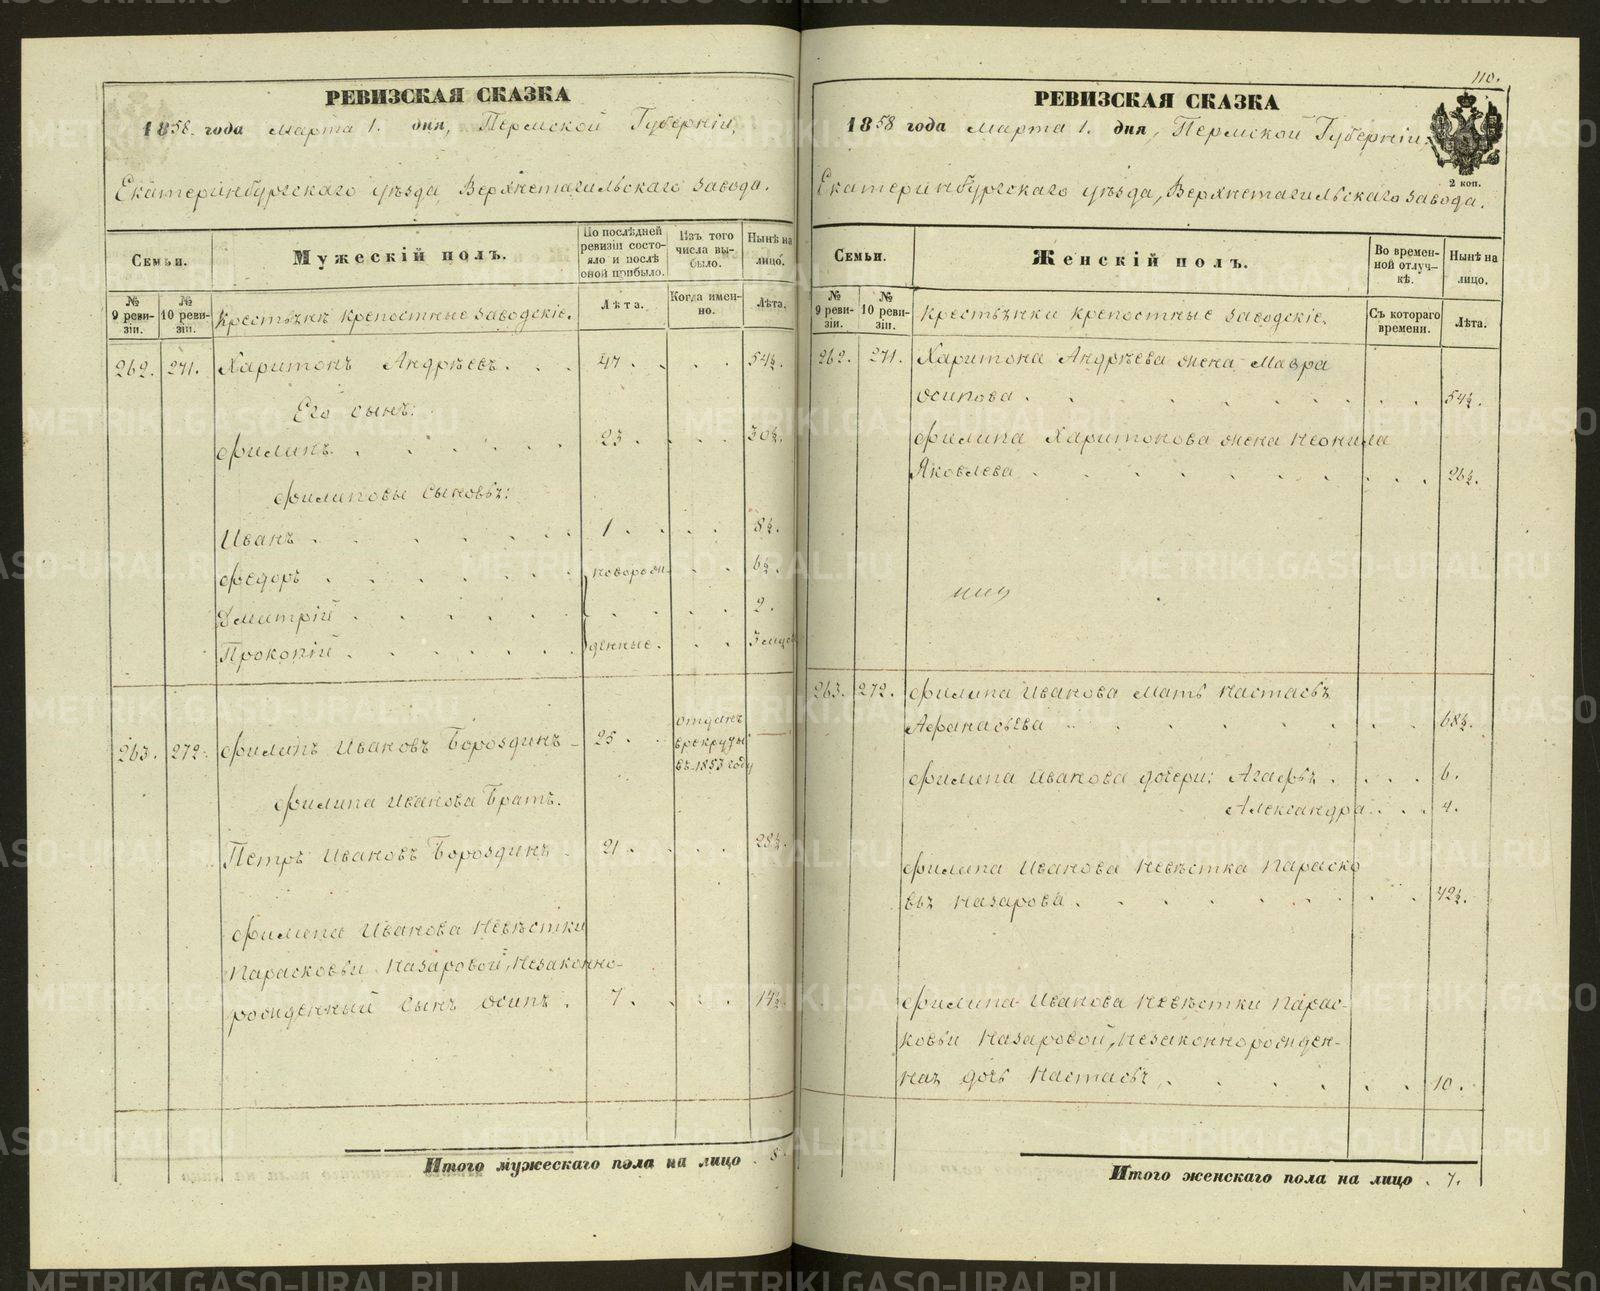 РЕВИЗСКАЯ СКАЗКА
1858. года Марта 1. дня, Пермской Губерніи,
Екатеринбургскаго уѣзда, Верхнетагильскаго завода.
Семьи.
Мужескій полъ.
По послѣдней ревизіи состояло и послѣ оной прибыло.
Изъ того числа выбыло.
Нынѣ на лицо.
№ 9 ревизіи.
№ 10 ревизіи.
Крестьяне крепостные заводскіе.
Лѣта.
Когда именно.
Лѣта.
262. 271. Харитонъ Андрѣевъ. . . 47 . . . . 54½.
Его сынъ:
Филипъ. . . . . . 23 . . . . 30½.
Филиповы сыновья:
Иванъ . . . . . . 1 . . . . 8½.
Федоръ . . . . . . новорож- . . 6½.
Дмитрій . . . . . . . . . 2.
Прокопій . . . . . . денные. . . 3 мѣся
263. 272. Филипъ Ивановъ Бороздинъ - 25 . отданъ
в рекруты
въ 1853 году
Филипа Иванова Братъ.
Петръ Ивановъ Бороздинъ - 21 . . . . 28½.
Филипа Иванова Невѣстки
Парасковьи Назаровой, Незаконно-
рожденный сынъ Осипъ . 7 . . . . 14½.
Итого мужескаго пола на лицо . 8.
110.
РЕВИЗСКАЯ СКАЗКА
1858 года Марта 1. дня, Пермской Губерніи,
2 коп.
Екатеринбургскаго уѣзда, Верхнетагильскаго завода.
Семьи.
Женскій полъ.
Во временной отлучкѣ.
Нынѣ на лицо.
№ 9 ревизіи.
№ 10 ревизіи.
Крестьянки крепостные заводскіе.
Съ котораго времени.
Лѣта.
262. 271. Харитона Андрѣева жена Мавра
Осипова . . . . . . . . 54½.
Филипа Харитонова жена Неонила
Яковлева . . . . . . . . 26½.
263. 272. Филипа Иванова Мать Настасья
Афанасьева . . . . . . . 68½.
Филипа Иванова дочери: Агафья . . . . 6.
Александра . . . 4.
Филипа Иванова Невѣстка Параско
вья Назарова . . . . . . . 42½.
Филипа Иванова Невѣстки Парас-
ковьи Назаровой, Незаконнорожден-
ная дочь Настасья . . . . . . 10.
Итого женскаго пола на лицо . 7.
METRIKI.GASO-URAL.RU